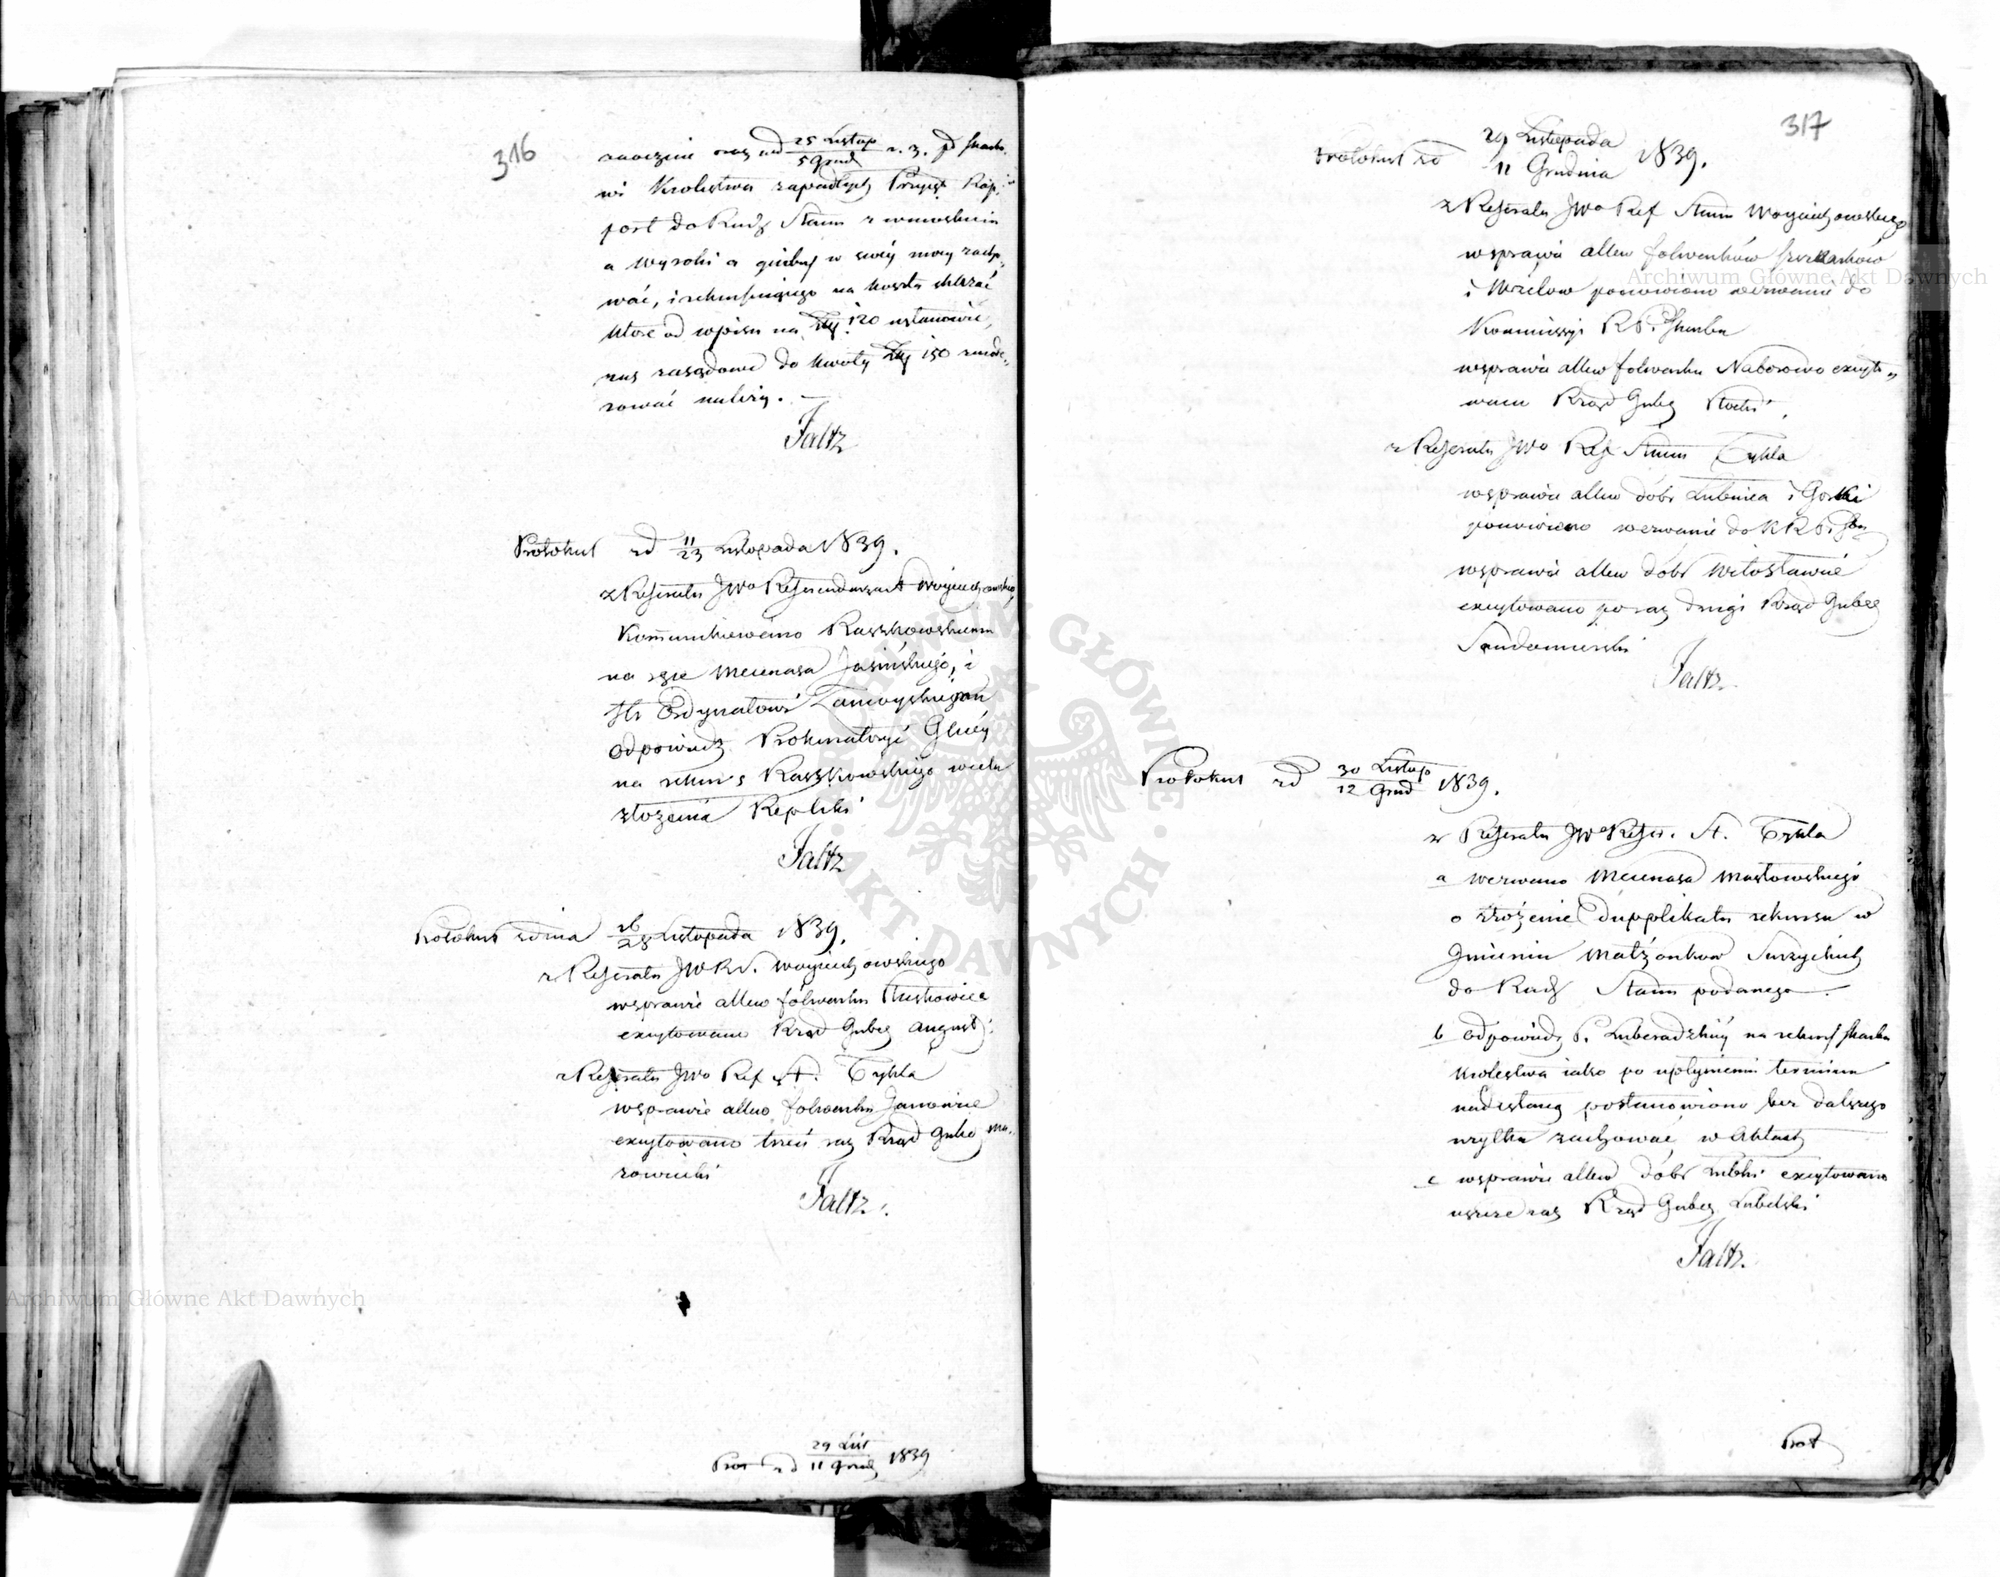 316
oraz zd 25 Listop
5 Grud r. z.
wi Królestwa zapadłych Przyjęt Rap-
port do Rady Stanu z wnioskiem
a wysoki a w swéj mocy zacho-
wać, i rekurującego na koszta skazać
które od wpisu na Złp 120 ustanowić,
zaś zasądzone do kwoty Złp 150
rować należy. —
Faltz
Protokuł zd 11/23 Listopada 1839.
z Referatu JWo Referendarza St Woyciechowskiego
Kommunikowano Raszkowskiemu
na ręce Mecenasa Jasińskiego, i
Ordynatowi Zamoyskiemu
odpowiedź Prokuratoryi Głney
na rekurs Raszkowskiego w celu
złożenia Repliki
Faltz
Protokuł zdnia 16/28 Listopada 1839.
z Referatu JW R. S. Woyciechowskiego
w sprawie allew folwarku
excytowano Rząd Gubeg August:
z Referatu JWo Ref St. Tykla
w sprawie allew folwarku Janowice
excytowano trzeci raz Rząd Gube Ma-
zowiecki
Faltz.
Prot zd 29 List
11 Grud 1839
317
Protokuł zd 29 Listopada
11 Grudnia 1839.
z Referatu JWo Ref Stanu Woyciechowskiego
w sprawie allew folwarków
i ponowiono wezwanie do
Kommissyi R P. i Skarbu
w sprawie allew folwarku Naborowo excyto-
wano Rząd Gubeg Płocki.
z Referatu JWo Ref Stanu Tykla
w sprawie allew dóbr Łubnica i Gorki
ponowiono wezwanie do K R P. i Skar
w sprawie allew dóbr Witosławice
excytowano po raz drugi Rząd Gubeg
Sandomierski
Faltz.
Protokuł zd 30 Listop
12 Grud 1839.
z Referatu JWo Refer. St. Tykla
a wezwano Mecenasa Masłowskiego
o złożenie Dupplikatu rekursu w
Imieniu Małżonków
do Rady Stanu podanego.
b odpowiedź P. na rekurs Skarbu
Królestwa iako po upłynieniu terminu
nadesłaną postanowiono bez dalszego
użytku zachować w Aktach
c w sprawie allew dóbr excytowano
raz Rząd Gubeg Lubelski
Faltz.
Prot
Archiwum Główne Akt Dawnych
Archiwum Główne Akt Dawnych
ARCHIWUM GŁÓWNE · AKT DAWNYCH ·